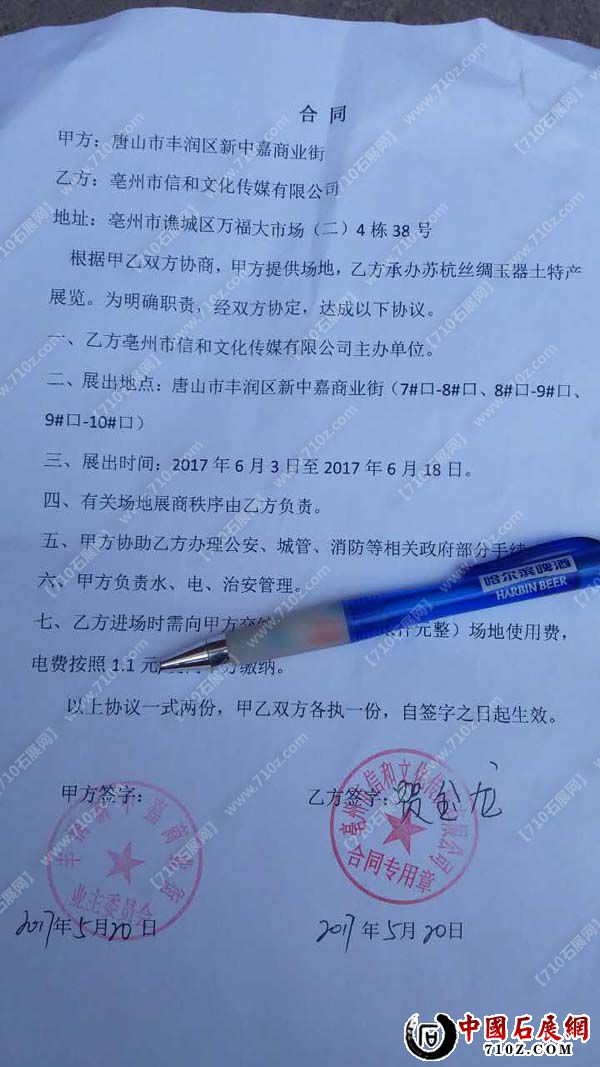 合 同
甲方：唐山市丰润区新中嘉商业街
乙方：亳州市信和文化传媒有限公司
地址：亳州市谯城区万福大市场（二）4 栋 38 号
根据甲乙双方协商，甲方提供场地，乙方承办苏杭丝绸玉器土特产
展览。为明确职责，经双方协定，达成以下协议。
一、乙方亳州市信和文化传媒有限公司主办单位。
二、展出地点：唐山市丰润区新中嘉商业街（7#口-8#口、8#口-9#口、
9#口-10#口）
三、展出时间：2017 年 6 月 3 日至 2017 年 6 月 18 日。
四、有关场地展商秩序由乙方负责。
五、甲方协助乙方办理公安、城管、消防等相关政府部分手续
六、甲方负责水、电、治安管理。
哈尔滨啤酒
HARBIN BEER
七、乙方进场时需向甲方 元整）场地使用费，
电费按照 1.1 元 缴纳。
以上协议一式两份，甲乙双方各执一份，自签字之日起生效。
甲方签字：
乙方签字：贺金龙
业主委员会
亳州市信和文化传媒有限公司
合同专用章
2017年5月20日
2017年5月20日
中國石展網
710Z.COM
【710石展网】
www.710z.com